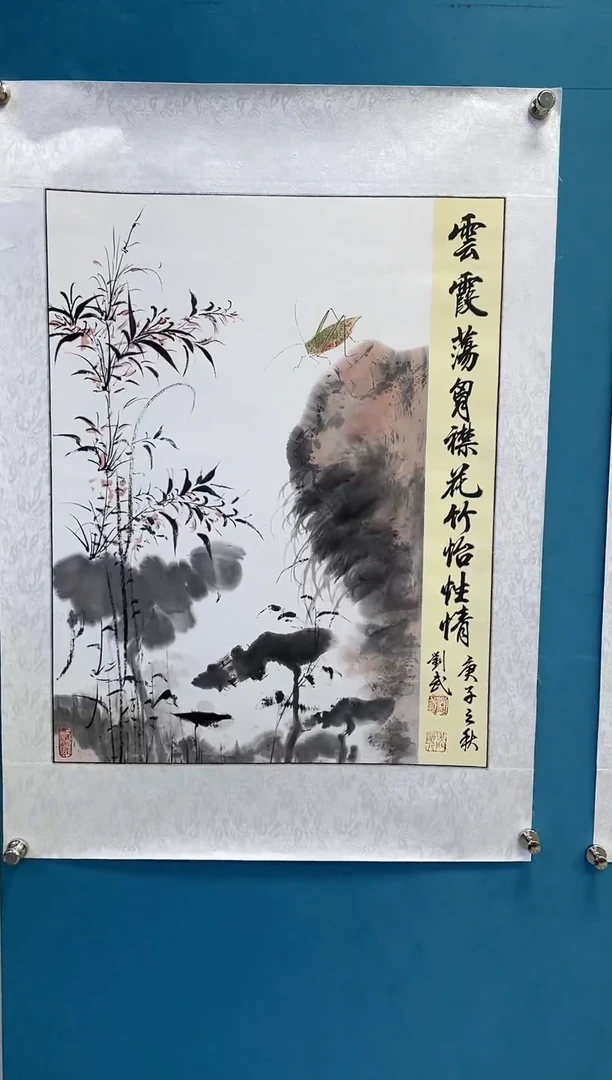 雲霞蕩胷襟花竹怡性情
庚子之秋
劉武